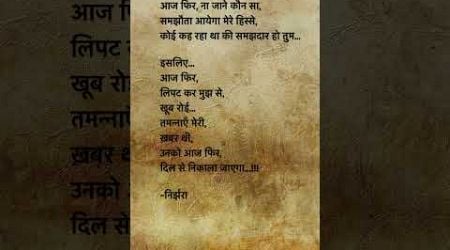 आज फिर, ना जाने कौन सा,
समझौता आयेगा मेरे हिस्से,
कोई कह रहा था की समझदार हो तुम...
इसलिए...
आज फिर,
लिपट कर मुझ से,
खूब रोई...
तमन्नाएँ मेरी,
ख़बर थी,
उनको आज फिर,
दिल से निकाला जाएगा...!!!
-निर्झरा